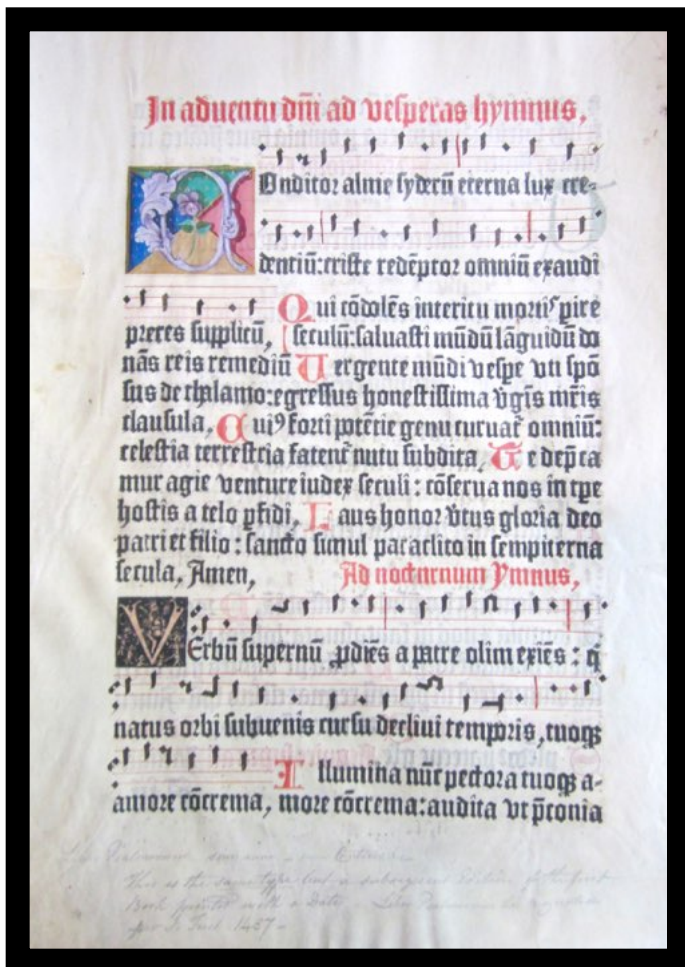 In aduentu dñi ad vesperas hymnus,
Onditor alme syderũ eterna lux cre-
dentiũ: criste redẽptor omniũ exaudi
Qui cõdolẽs interitu mortiˢ pire
preces supplicũ, seculũ: saluasti mũdũ lãguidũ do
nãs reis remediũ Uergente mũdi vespe vti spõ
sus de thalamo: egressus honestissima v̾gĩs mr̃is
clausula, Cuiꝰ forti potẽtie genu curuat̾ omniũ:
celestia terrestria fatent̾ nutu subdita, Te dep̃ca
mur agie venture iudex seculi: cõserua nos in tp̃e
hostis a telo ꝑfidi, Laus honor v̾tus gloria deo
patri et filio: sancto simul paraclito in sempiterna
secula, Amen, Ad nocturnum Ymnus,
Verbũ supernũ ꝓdiẽs a patre olim exiẽs: q̃
natus orbi subuenis cursu decliui temporis, tuoqꝫ
Illumina nũc pectora tuoqꝫ a-
amore cõcrema, more cõcrema: audita vt p̃conia
This is the same type but a subsequent Edition of the first
Book printed with a Date
1457